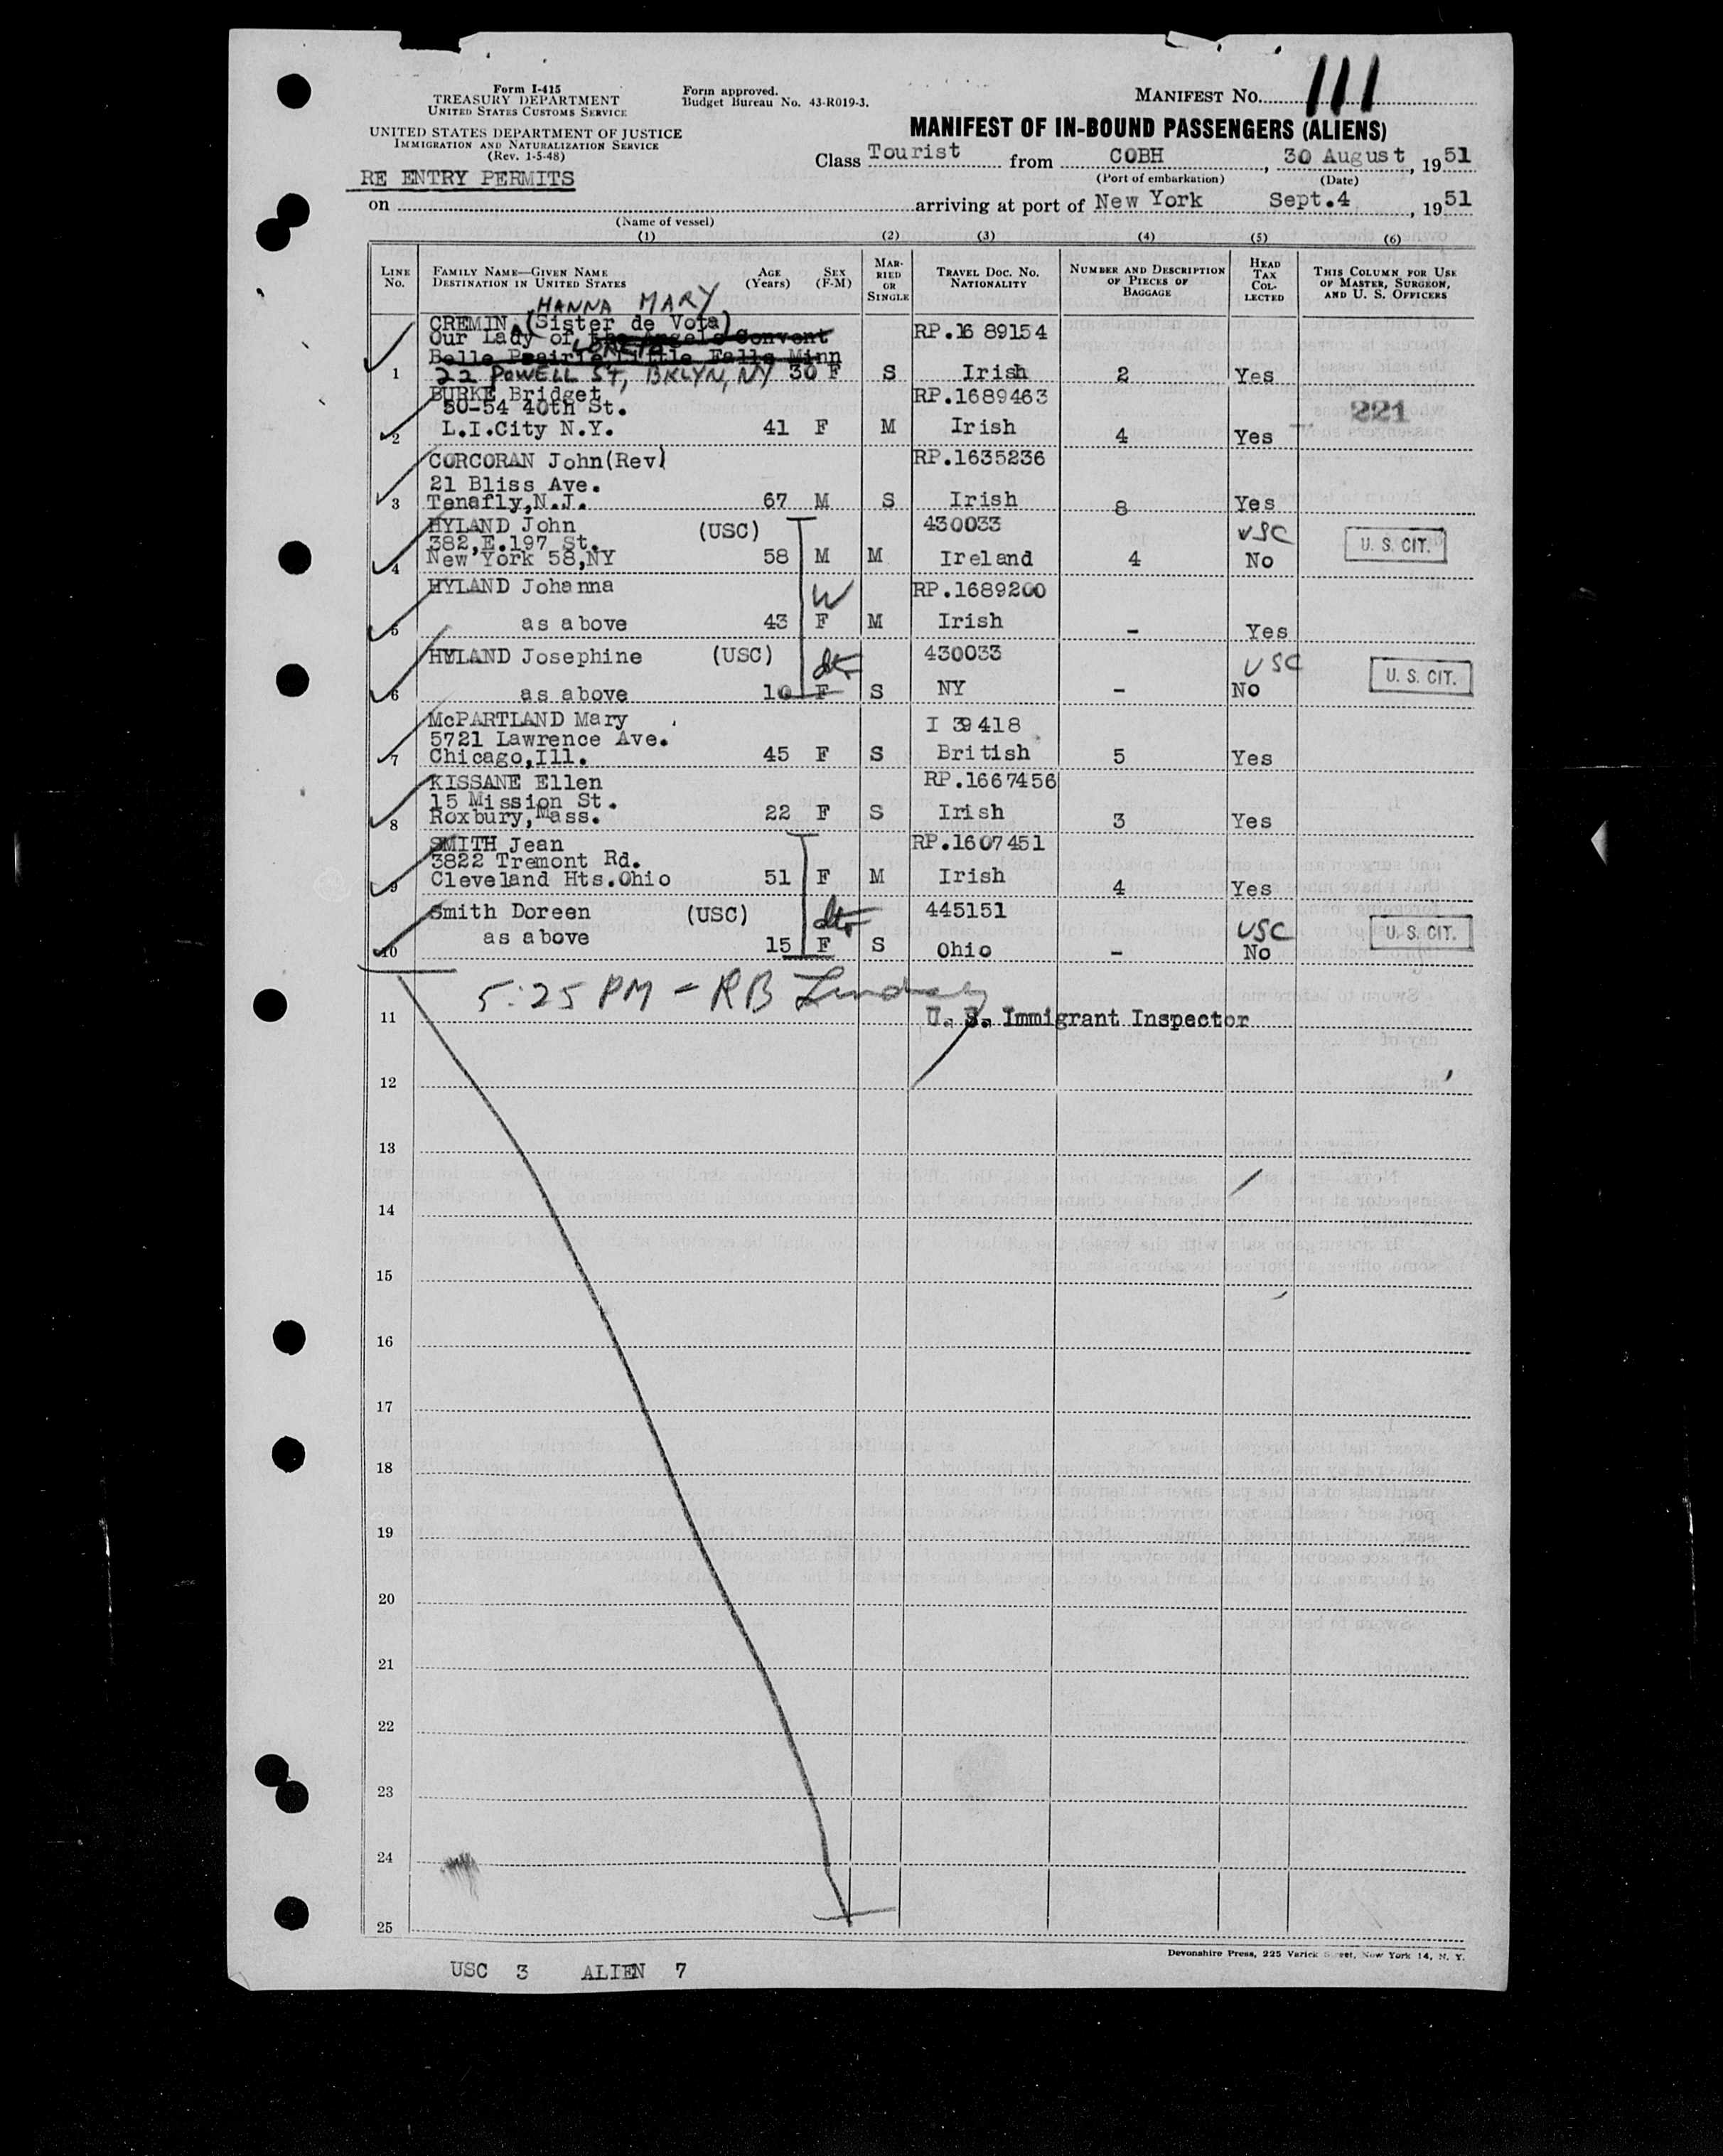 Form I-415
TREASURY DEPARTMENT
UNITED STATES CUSTOMS SERVICE
UNITED STATES DEPARTMENT OF JUSTICE
IMMIGRATION AND NATURALIZATION SERVICE
(Rev. 1-5-48)
Form approved.
Budget Bureau No. 43-R019-3.
MANIFEST NO. 111
MANIFEST OF IN-BOUND PASSENGERS (ALIENS)
Class Tourist from COBH, 30 August, 1951
(Port of embarkation) (Date)
RE ENTRY PERMITS
on arriving at port of New York Sept.4, 1951
(Name of vessel)
(1) (2) (3) (4) (5) (6)
LINE NO. FAMILY NAME—GIVEN NAME DESTINATION IN UNITED STATES AGE (Years) SEX (F-M) MARRIED OR SINGLE TRAVEL DOC. NO. NATIONALITY NUMBER AND DESCRIPTION OF PIECES OF BAGGAGE HEAD TAX COLLECTED THIS COLUMN FOR USE OF MASTER, SURGEON, AND U. S. OFFICERS
HANNA MARY
CREMIN (Sister de Vota) RP.1689154
Our Lady of the Angels Convent
LORETO
Belle Prairie Little Falls Minn
1 22 POWELL ST, BKLYN, NY 30 F S Irish 2 Yes
BURKE Bridget RP.1689463
50-54 40th St. 221
2 L.I.City N.Y. 41 F M Irish 4 Yes
CORCORAN John(Rev) RP.1635236
21 Bliss Ave.
3 Tenafly,N.J. 67 M S Irish 8 Yes
HYLAND John (USC) 430033 USC
382,E.197 St. U. S. CIT.
4 New York 58,NY 58 M M Ireland 4 No
HYLAND Johanna W RP.1689200
5 as above 43 F M Irish - Yes
HYLAND Josephine (USC) dtr 430033 USC U. S. CIT.
6 as above 10 F S NY - No
McPARTLAND Mary I 39418
5721 Lawrence Ave.
7 Chicago,Ill. 45 F S British 5 Yes
KISSANE Ellen RP.1667456
15 Mission St.
8 Roxbury,Mass. 22 F S Irish 3 Yes
SMITH Jean RP.1607451
3822 Tremont Rd.
9 Cleveland Hts.Ohio 51 F M Irish 4 Yes
Smith Doreen (USC) dtr 445151 USC U. S. CIT.
10 as above 15 F S Ohio - No
5:25 PM - RB Lindsay
11 U. S. Immigrant Inspector
12
13
14
15
16
17
18
19
20
21
22
23
24
25
Devonshire Press, 225 Varick Street, New York 14, N. Y.
USC 3 ALIEN 7